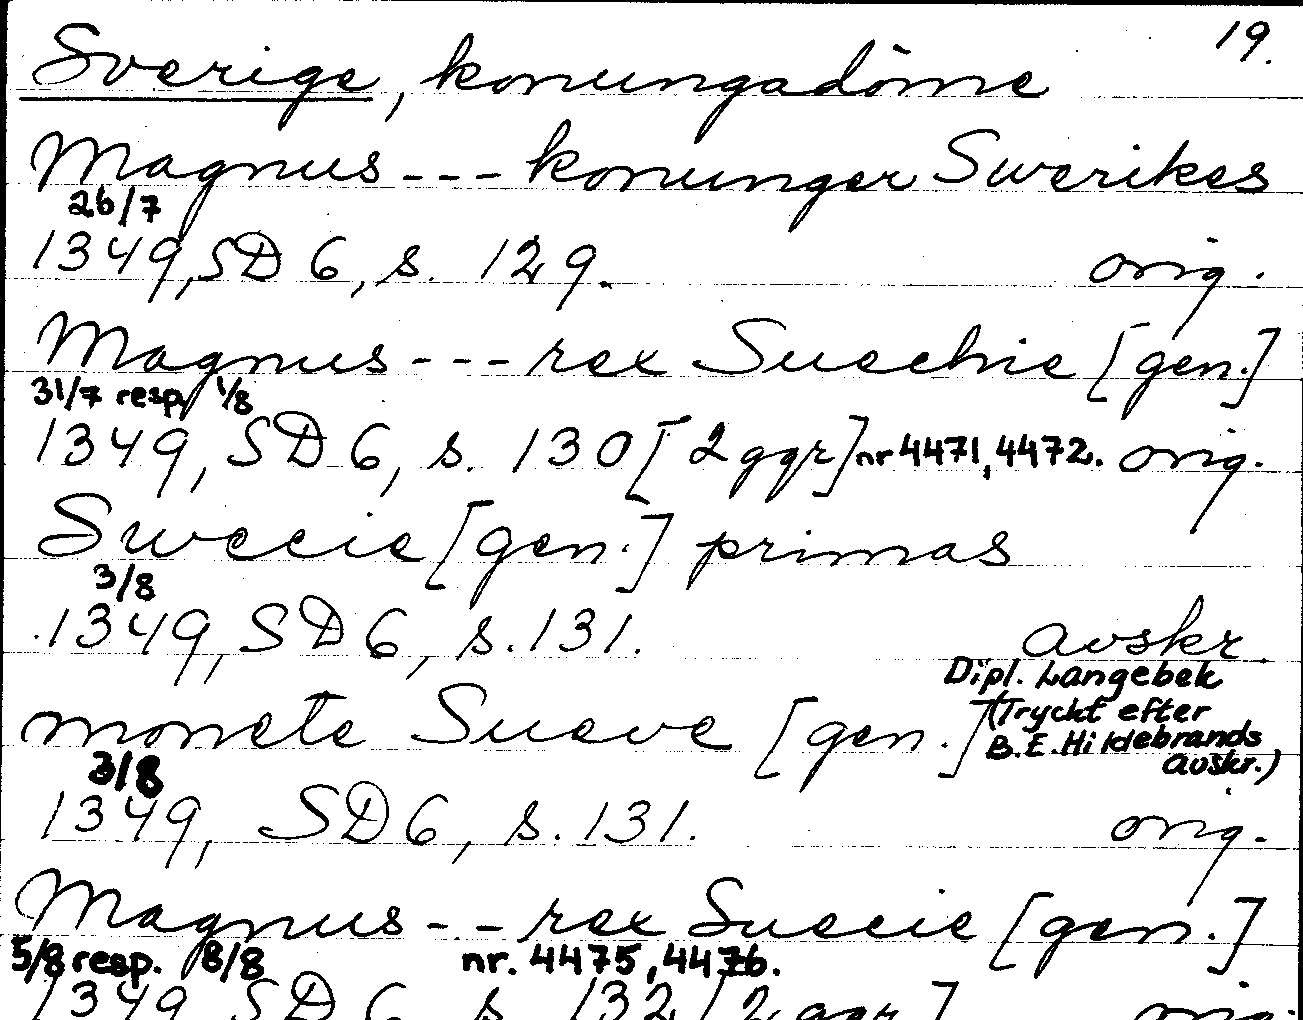 19.
Sverige, konungadöme
Magnus --- konunger Swerikes
26/7
1349, SD 6, s. 129. orig.
Magnus --- rex Suechie [gen.]
31/7 resp. 1/8
1349, SD 6, s. 130 [2 ggr] nr 4471, 4472. orig.
Sweeie [gen.] primas
3/8
1349, SD 6, s. 131. avskr.
Dipl. Langebek
(Tryckt efter
monete Sueve [gen.] B.E. Hildebrands
avskr.)
3/8
1349, SD 6, s. 131. orig.
Magnus --- rex Suecie [gen.]
5/8 resp. 8/8 nr. 4475, 4476.
1349 SD 6 s. 132 [2 ggr] orig.